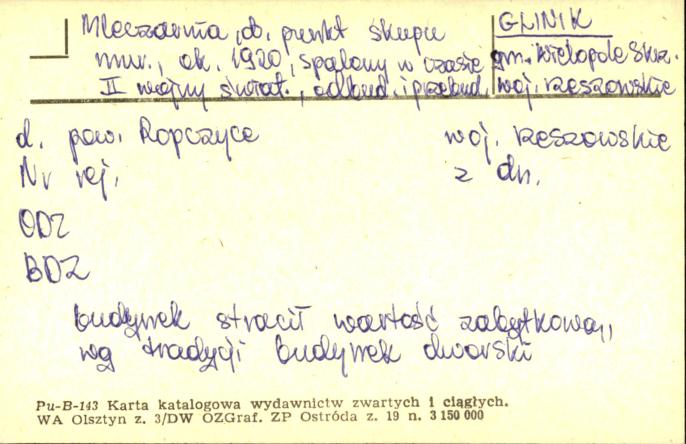 Mleczarnia, ob. punkt skupu
mur., ok. 1920, spalony w czasie
II wojny świat., odbud. i przebud.
GLINIK
gm. Wielopole Skrz.
woj. rzeszowskie
d. pow. Ropczyce
woj. rzeszowskie
Nr rej.
z dn.
ODZ
BDZ
budynek stracił wartość zabytkową,
wg tradycji budynek dworski
Pu-B-143 Karta katalogowa wydawnictw zwartych i ciągłych.
WA Olsztyn z. 3/DW OZGraf. ZP Ostróda z. 19 n. 3 150 000